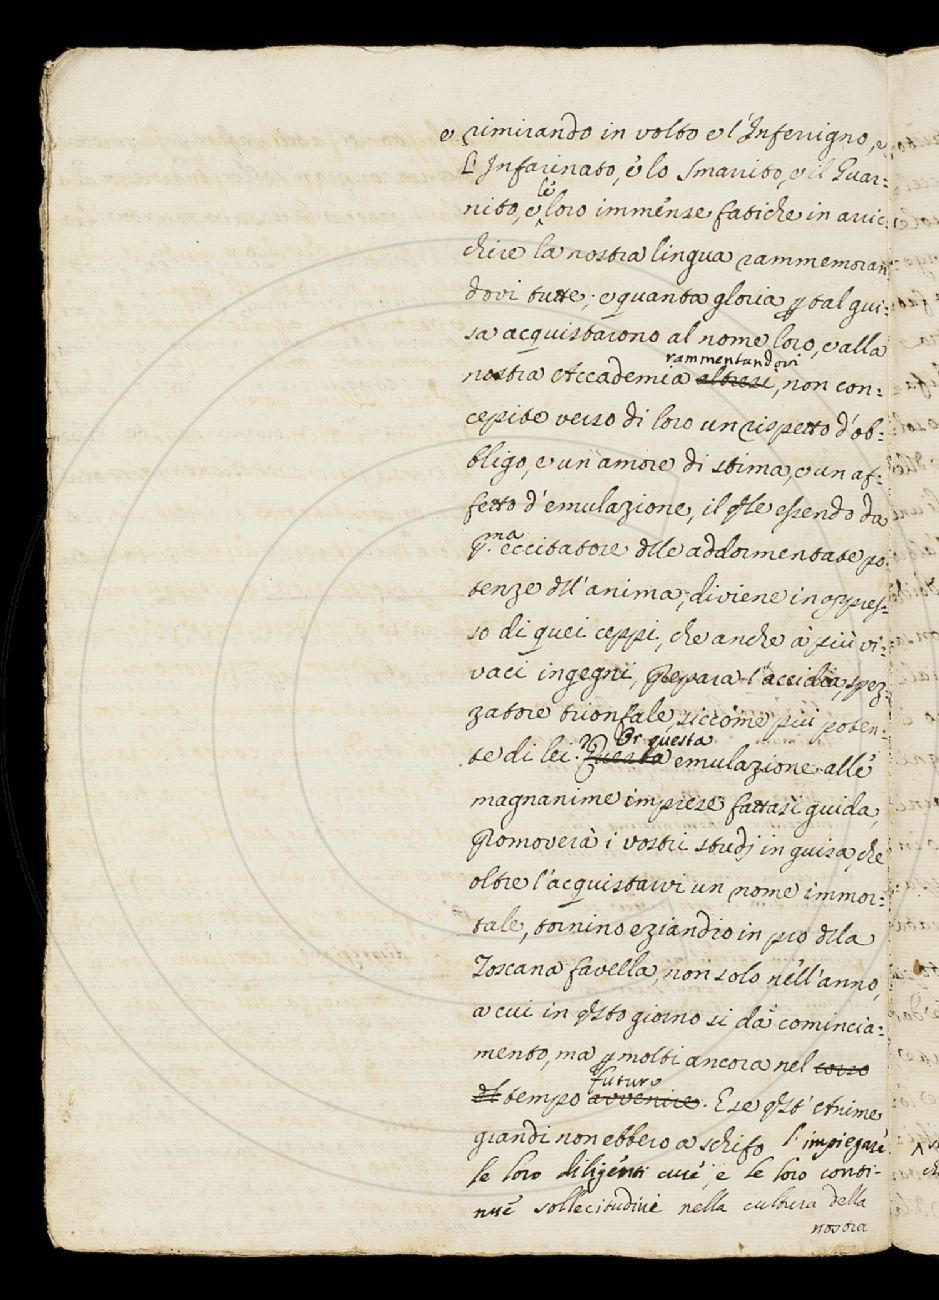 e rimirando in volto e l'Inferrigno, e
L'Infarinato, e lo Smarrito, e il Guar=
nito, e le loro immense fatiche in arric=
chire la nostra lingua rammemoran
dovi tutte; e quanta gloria p tal gui=
sa acquistarono al nome loro, e alla
nostra Accademia altresi rammentandovi, non con=
cepite verso di loro un rispetto d'ob=
bligo, e un amore di stima, e un af=
fetto d'emulazione, il qle essendo da
p.ma eccitatore dlle addormentate po=
tenze dll'anima; diviene in appres=
so di quei ceppi, che anche à più vi=
vaci ingegni, prepara l'accidia, spez=
zatore trionfale, siccome più poten=
te di lei. Questa Or questa emulazione alle
magnanime imprese fattasi guida,
promoverà i vostri studj in guisa, che
oltre l'acquistarvi un nome immor=
tale, tornino eziandio in pro dlla
Toscana favella, non solo nell'anno,
a cui in qsto giorno si dà comincia=
mento, ma p molti ancora nel corso
dl tempo avvenire futuro. E se qst'Anime
grandi non ebbero a schifo l'impiegare
le loro diligenti cure, e le loro conti-
nue sollecitudini nella cultura della
nostra